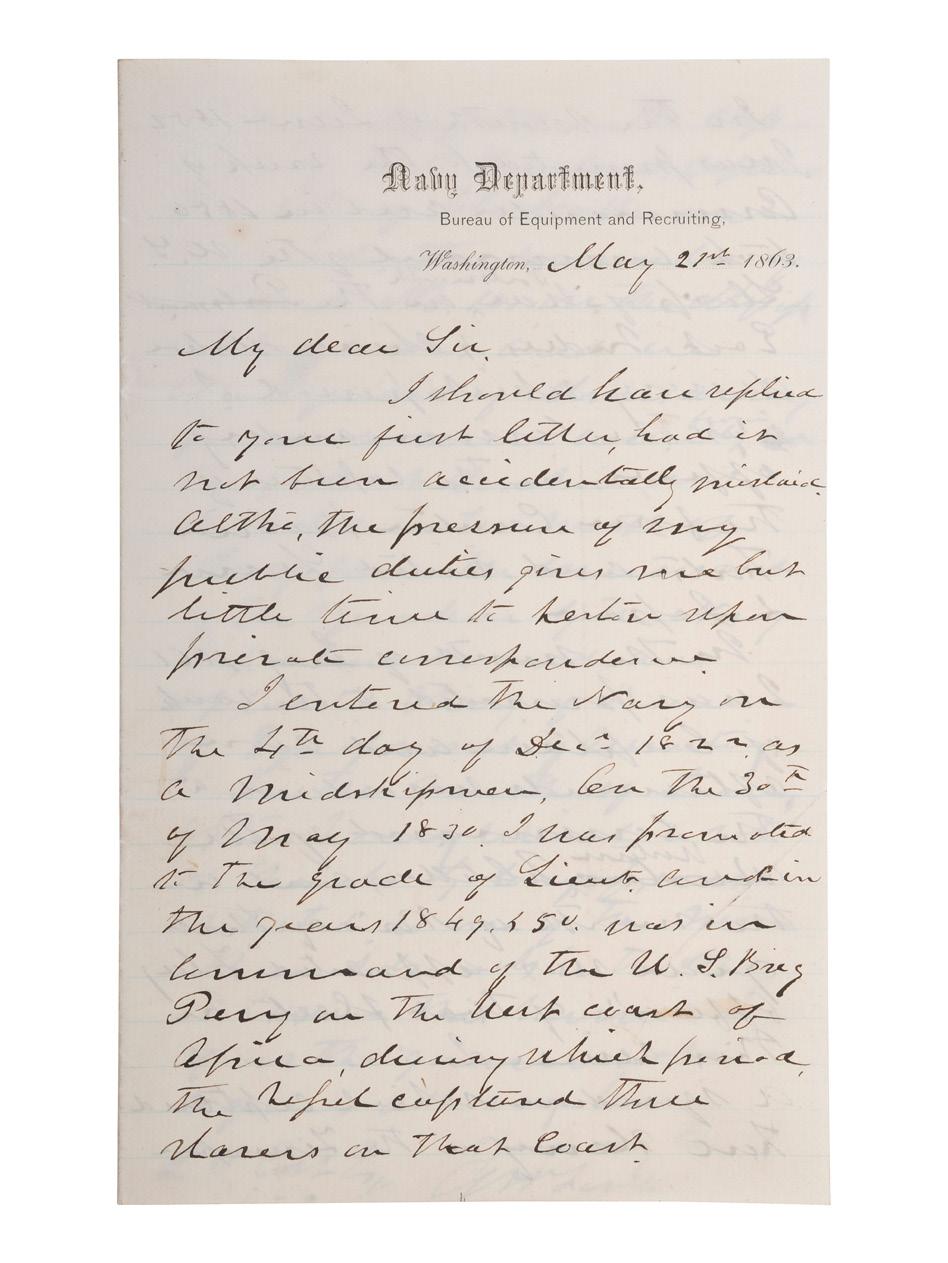 Navy Department,
Bureau of Equipment and Recruiting,
Washington, May 21st 1863.
My dear Sir.
I should have replied
to your first letter, had it
not been accidentally mislaid.
Altho', the pressure of my
public duties gives me but
little time to bestow upon
private correspondence.
I entered the Navy on
the 4th day of Decr 1822 as
a Midshipman, On the 30th
of May 1830 I was promoted
to the grade of Lieut. and in
the years 1849. & 50. was in
Command of the U. S. Brig
Perry on the West coast of
Africa, during which period,
the Vessel captured three
slavers on that Coast.